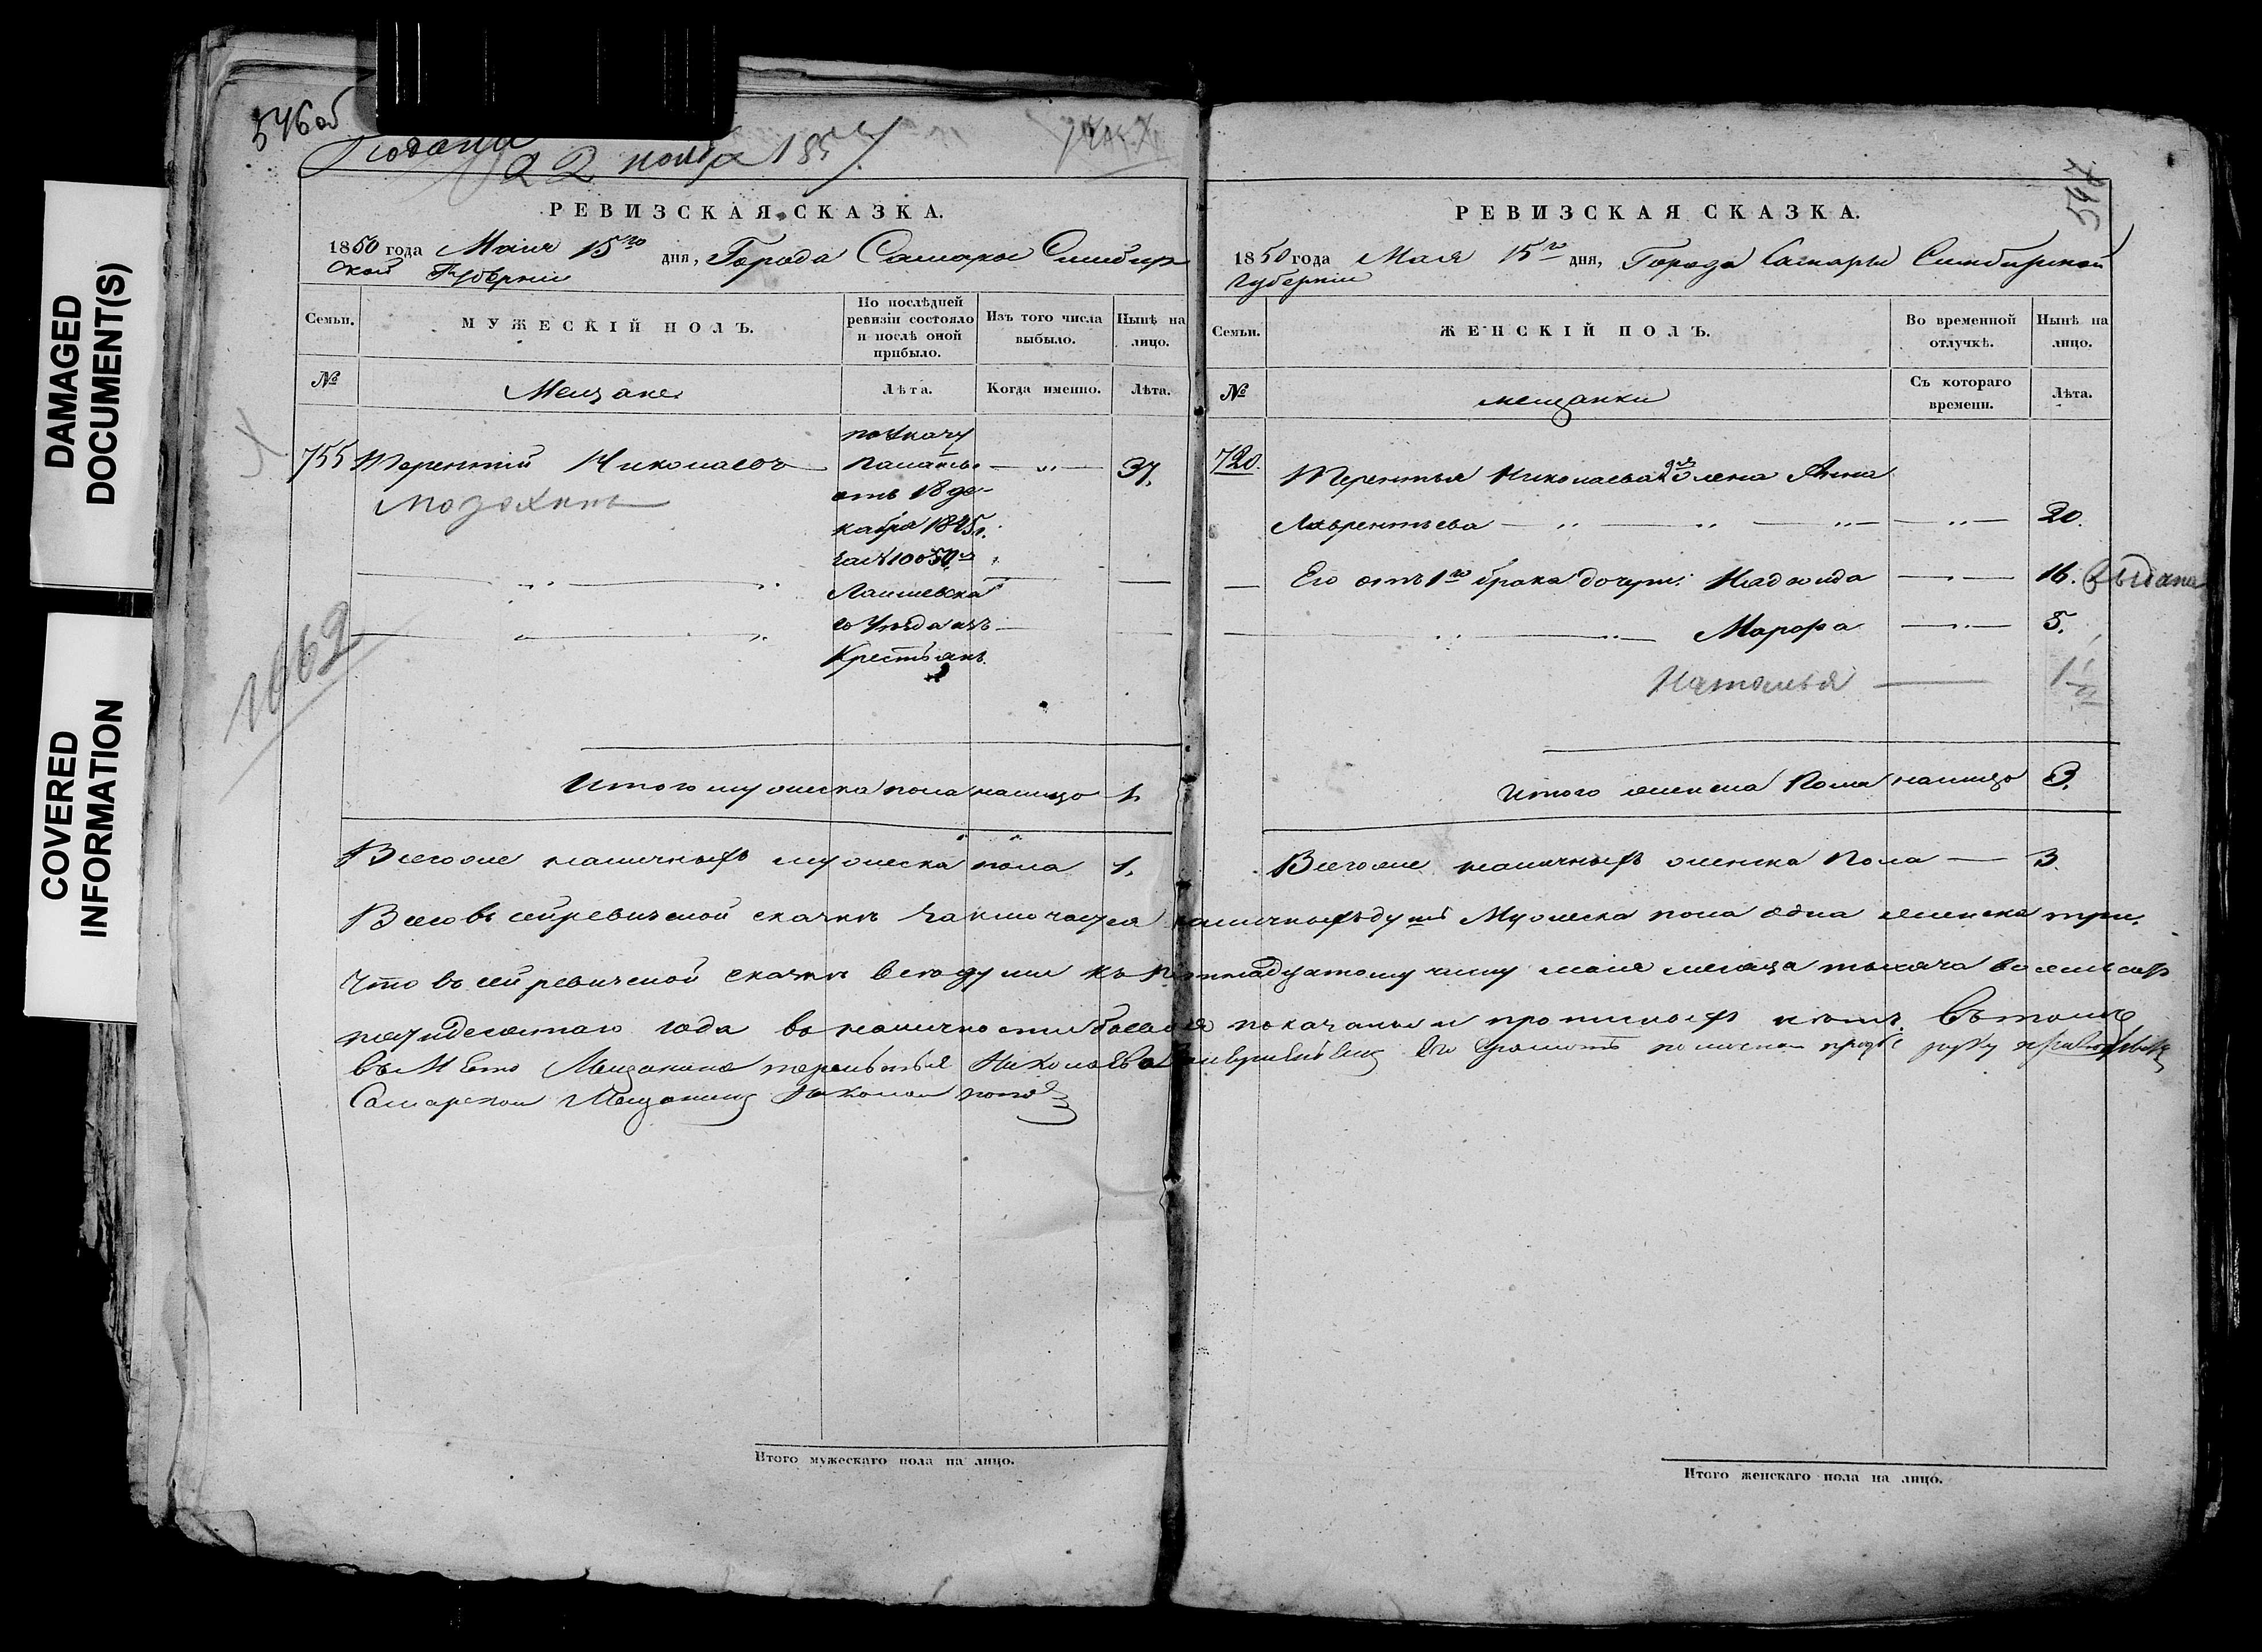 DAMAGED
DOCUMENT(S)
COVERED
INFORMATION
546об
Подана
22 ноября 1857
РЕВИЗСКАЯ СКАЗКА.
1850 года Маия 15го дня, Города Самары Симбир
ской Губернии
Семьи.
МУЖЕСКІЙ ПОЛЪ.
По послѣдней
ревизіи состояло
и послѣ оной
прибыло.
Изъ того числа
выбыло.
Нынѣ на
лицо.
№
Мещане
Лѣта.
Когда именно.
Лѣта.
755 Терентий Николаевъ
по Указу
Палаты
отъ 18 де-
кабря 1845г.
за № 10050м
Лаишевска
го Уезда изъ
Крестьянъ.
37.
1062
Итого мужеска пола налицо 1.
Всегоже наличныхъ мужеска пола 1.
547
РЕВИЗСКАЯ СКАЗКА.
1850 года Мая 15го дня, Города Самары Симбирской
Губернии
Семьи.
ЖЕНСКІЙ ПОЛЪ.
Во временной
отлучкѣ.
Нынѣ на
лицо.
№
мещанки
Съ котораго
времени.
Лѣта.
720. Терентья Николаева 2я жена Анна
Лаврентьева 20.
Его отъ 1го брака дочери: Надежда 16. Выдана
Марфа 5.
Наталья
Итого женска Пола налицо 3.
Всегоже наличныхъ женска Пола 3.
Всего въ сей ревизской сказке заключается наличныхъ душъ Мужеска пола одна женска три.
Что въ сей ревизской сказке все души къ пятнадцатому числу маия месяца тысяча восемь сотъ
пятидесятаго года въ наличности
въ Место Мещанина терентья Николаева
Самарской Мещанинъ
Итого мужескаго пола на лицо.
Итого женскаго пола на лицо.